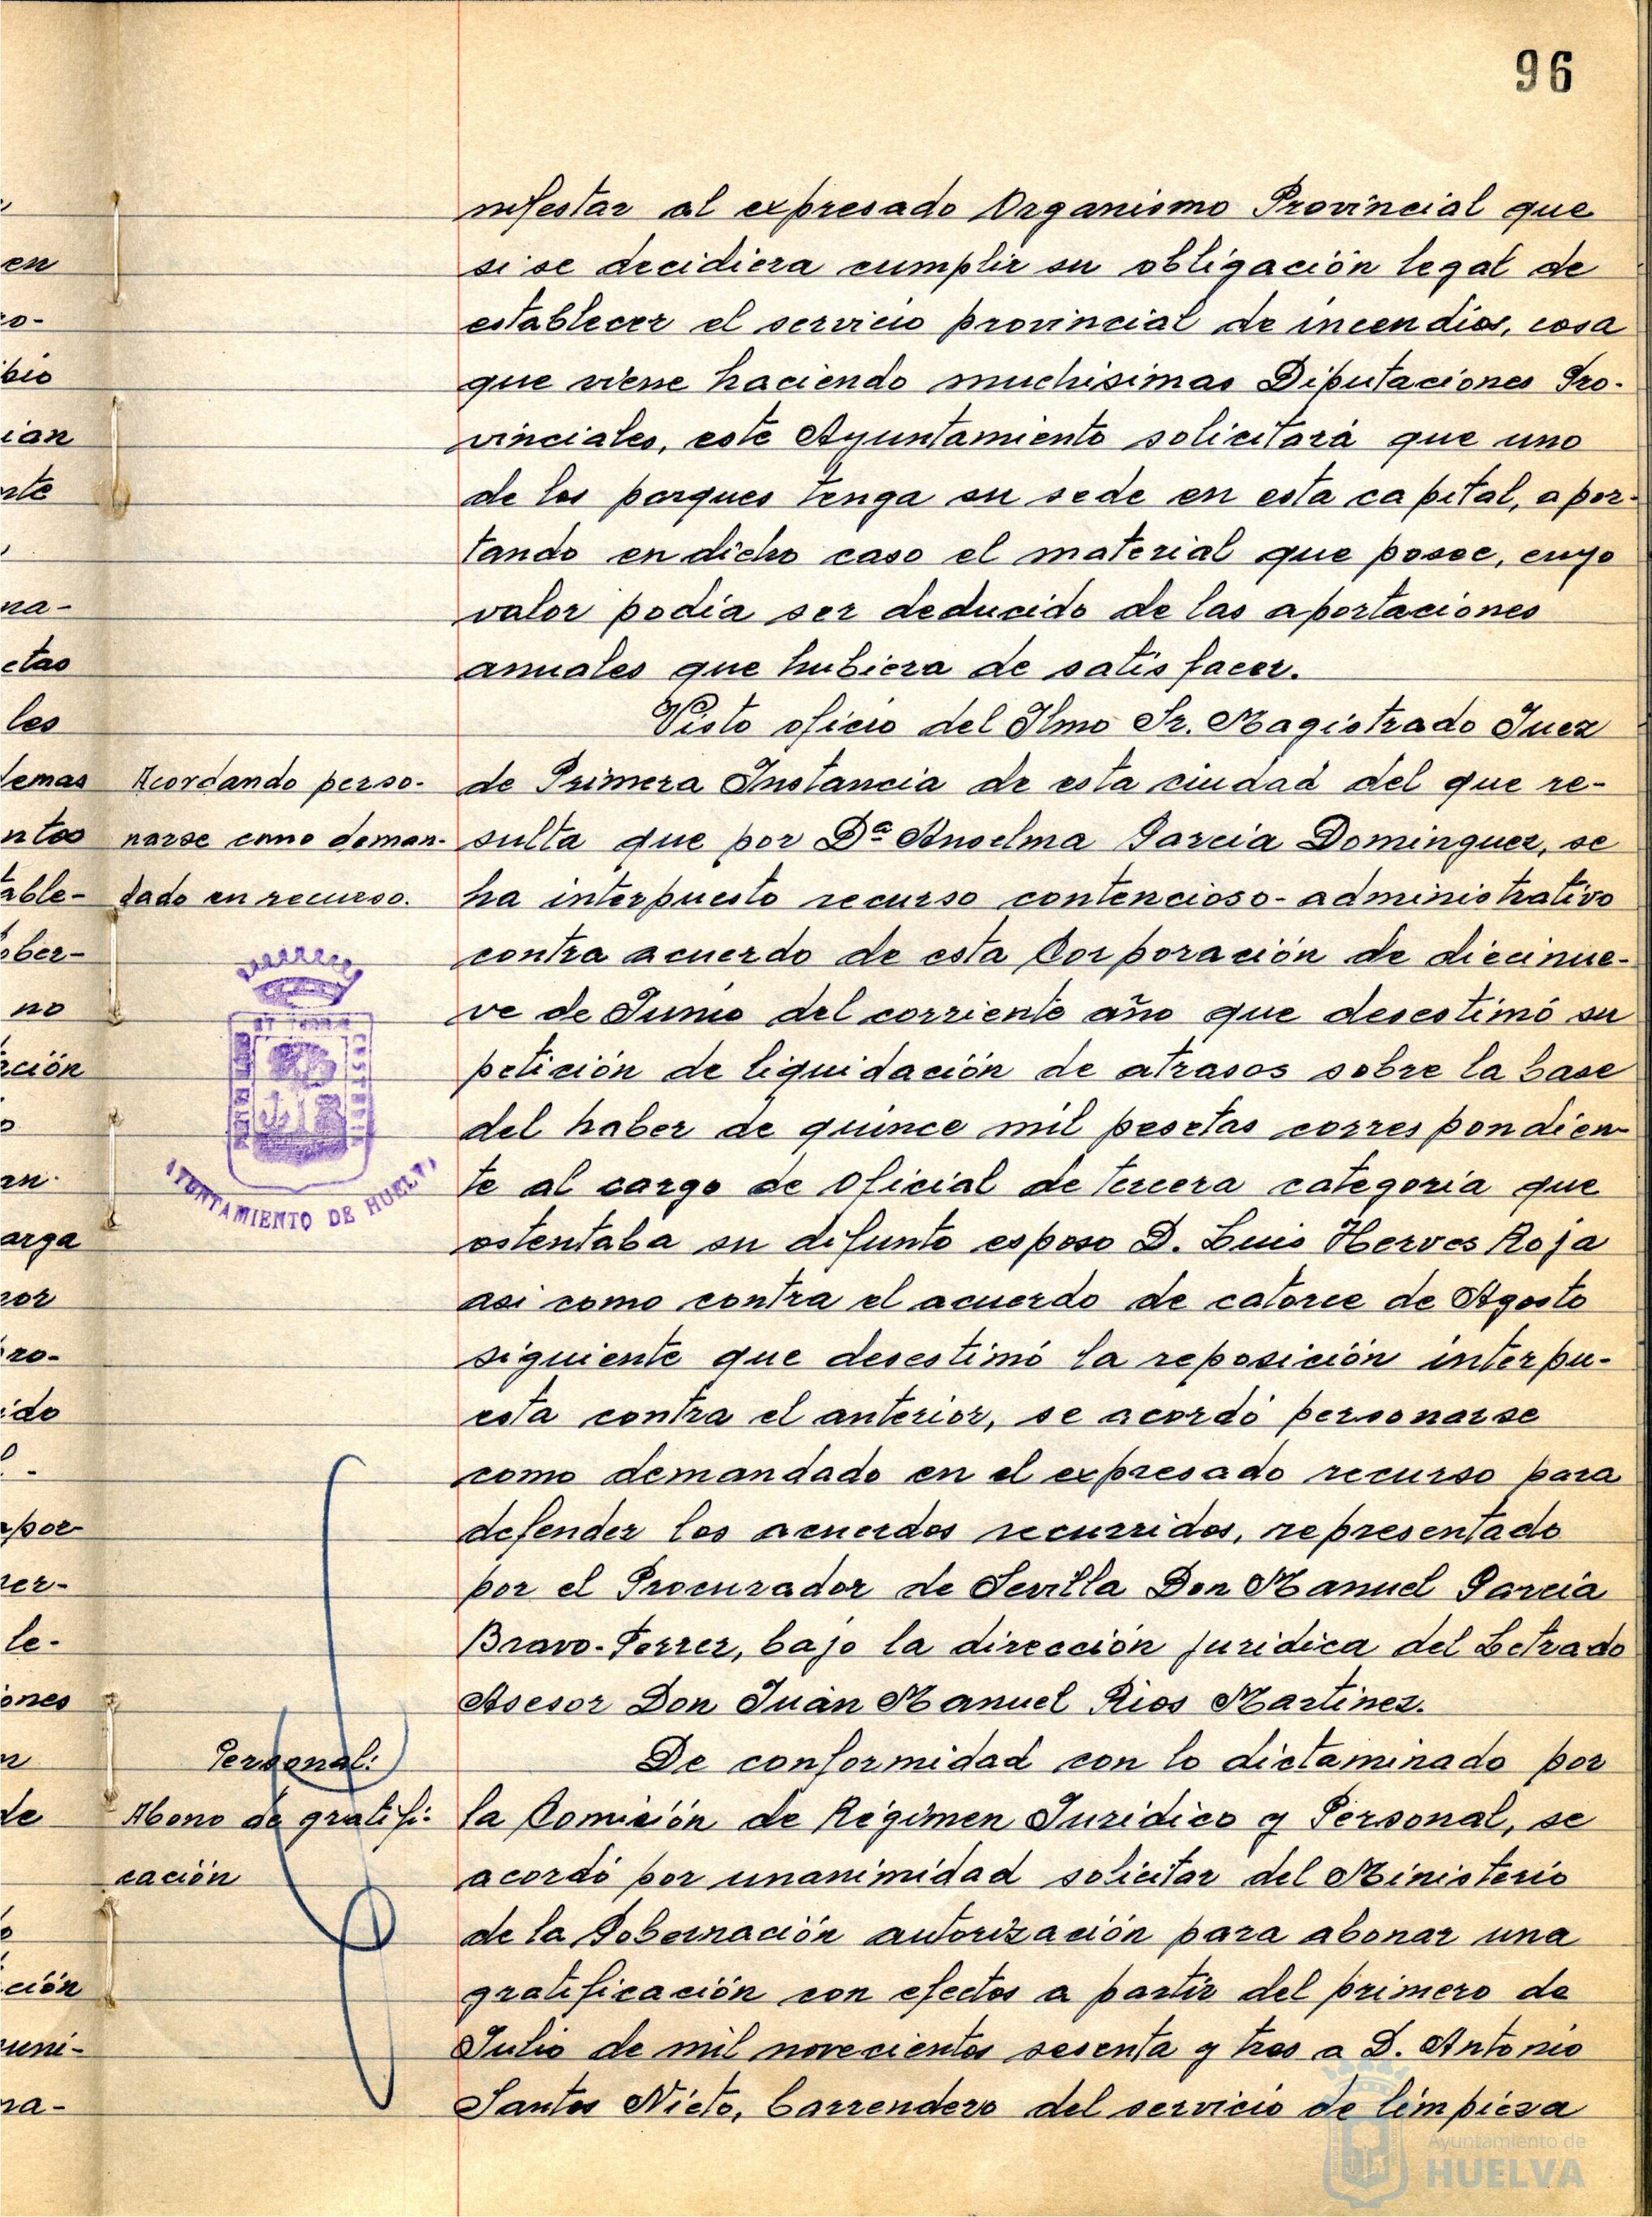 96
nifestar al expresado Organismo Provincial que
si se decidiera cumplir su obligación legal de
establecer el servicio provincial de incendios, cosa
que viene haciendo muchisimas Diputaciones Pro-
vinciales, este Ayuntamiento solicitará que uno
de los parques tenga su sede en esta capital, apor-
tando en dicho caso el material que posee, cuyo
valor podia ser deducido de las aportaciones
anuales que hubiera de satisfacer.
Visto oficio del Ilmo Sr. Magistrado Juez
Acordando perso-
narse como deman-
dado en recurso.
de Primera Instancia de esta ciudad del que re-
sulta que por Dª Anselma Garcia Dominguez, se
ha interpuesto recurso contencioso-administrativo
contra acuerdo de esta Corporación de diecinue-
ve de Junio del corriente año que desestimó su
petición de liquidación de atrasos sobre la base
del haber de quince mil pesetas correspondien-
te al cargo de Oficial de tercera categoria que
ostentaba su difunto esposo D. Luis Herves Roja
asi como contra el acuerdo de catorce de Agosto
siguiente que desestimó la reposición interpu-
esta contra el anterior, se acordó personarse
como demandado en el expresado recurso para
defender los acuerdos recurridos, representado
por el Procurador de Sevilla Don Manuel Garcia
Bravo-Ferrer, bajo la dirección juridica del Letrado
Asesor Don Juan Manuel Rios Martinez.
AYUNTAMIENTO DE HUELVA
Personal:
Abono de gratifi-
cación
De conformidad con lo dictaminado por
la Comisión de Régimen Juridico y Personal, se
acordó por unanimidad solicitar del Ministerio
de la Gobernación autorización para abonar una
gratificación con efectos a partir del primero de
Julio de mil novecientos sesenta y tres a D. Antonio
Santos Nieto, barrendero del servicio de limpieza
en
bio
ian
na-
ctas
les
emas
ntos
able-
ber-
no
ción
an.
arga
por
ro-
ido
por
er-
le-
ones
de
ción
uni-
na-
Ayuntamiento de
HUELVA